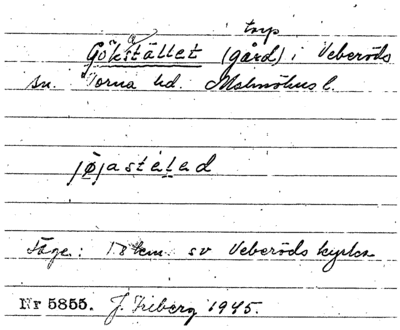 torp
Gökstället (gård) i Veberöds
sn. Torna hd. Malmöhus l.
Läge: 1.8 km sv Veberöds kyrka
Nr 5855. J. Friberg 1945.